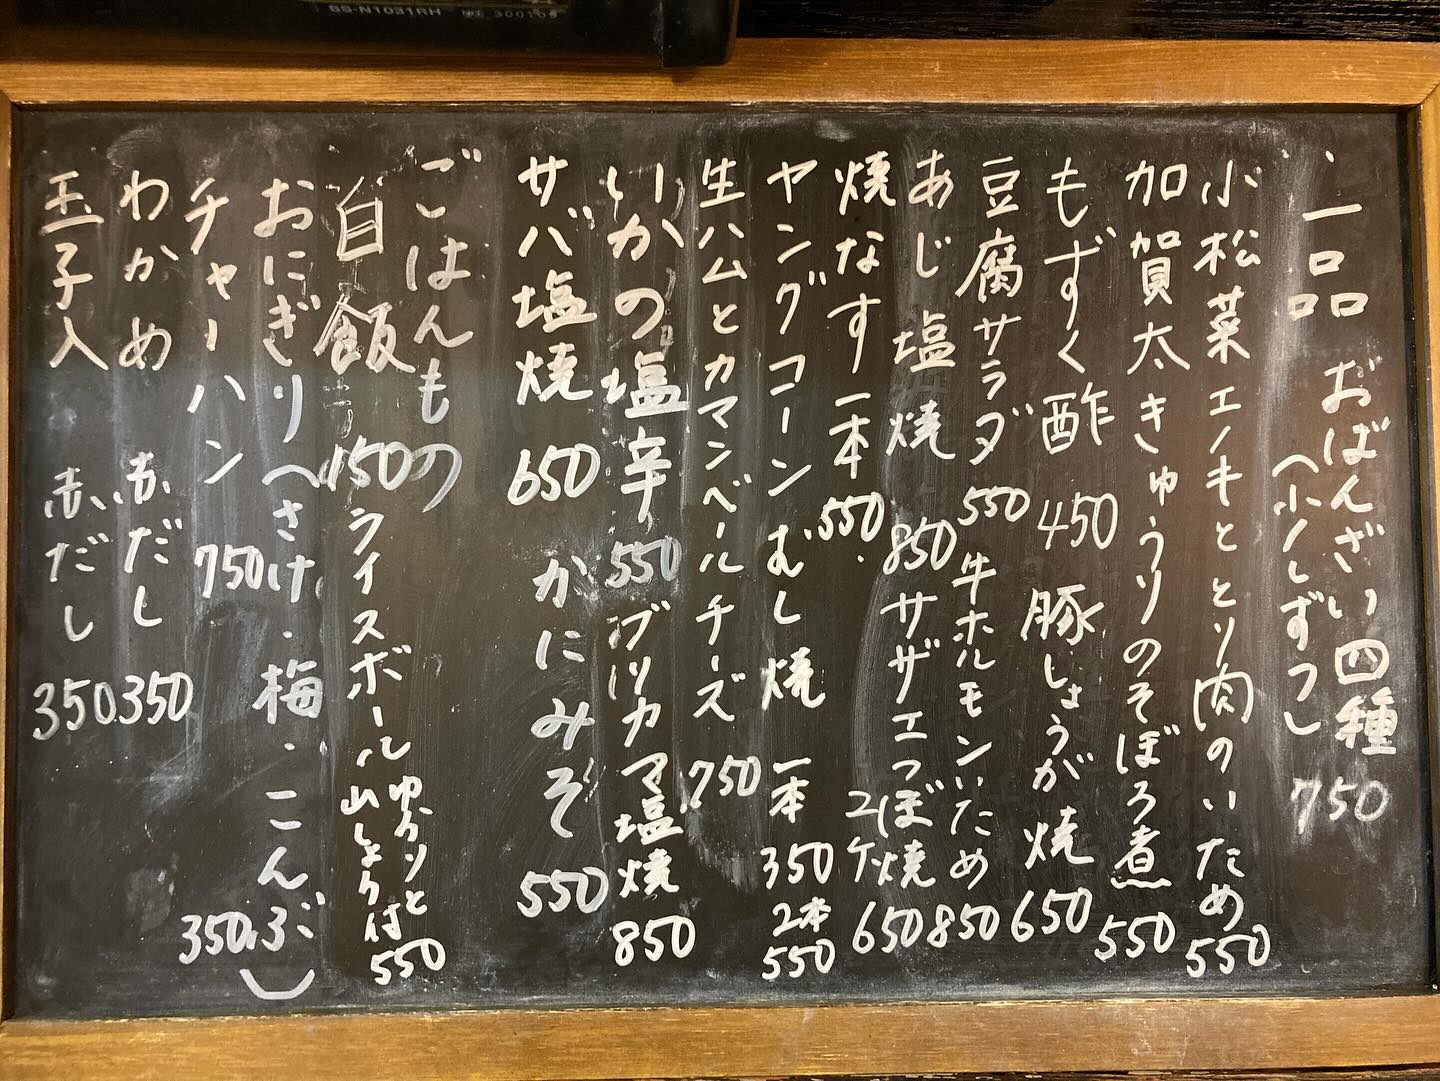 SS-N1031RH NI 300106
一品 おばんざい四種 750
(小しずつ)
小松菜エノキととり肉のいため 550
加賀太きゅうりのそぼろ煮 550
もずく酢 450 豚しょうが焼 650
豆腐サラダ 550 牛ホルモンいため 850
あじ塩焼 850 サザエつぼ焼 2ケ 650
焼なす一本 550
ヤングコーンむし焼 一本350 2本550
生ハムとカマンベールチーズ 750
いかの塩辛 550 ブリカマ塩焼 850
サバ塩焼 650 かにみそ 550
ごはんもの
白飯 150 ライスボール ゆかりと山しょう付 550
おにぎり(さけ・梅・こんぶ) 350
チャーハン 750
わかめ 赤だし 350
玉子入 赤だし 350